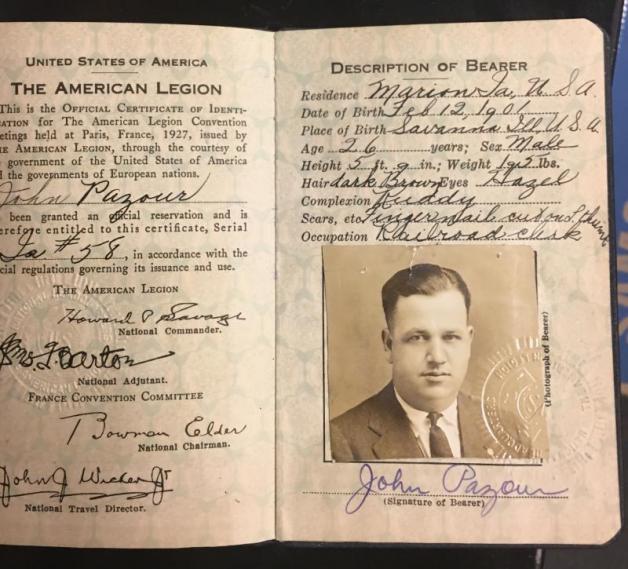 UNITED STATES OF AMERICA
THE AMERICAN LEGION
This is the OFFICIAL CERTIFICATE OF IDENTI-
ATION for The American Legion Convention
etings held at Paris, France, 1927, issued by
HE AMERICAN LEGION, through the courtesy of
government of the United States of America
d the governments of European nations.
John Pazour
been granted an official reservation and is
erefore entitled to this certificate, Serial
Ia #58, in accordance with the
cial regulations governing its issuance and use.
THE AMERICAN LEGION
Howard P Savage
National Commander.
Jas. F. Barton
National Adjutant.
FRANCE CONVENTION COMMITTEE
Bowman Elder
National Chairman.
John J Wicker Jr
National Travel Director.
DESCRIPTION OF BEARER
Residence Marion Ia, U S A.
Date of Birth Feb 12, 1901
Place of Birth Savanna Ill U.S.A.
Age 26 years; Sex Male
Height 5 ft. 9 in.; Weight 192 lbs.
Hair dark Brown Eyes Hazel
Complexion Ruddy
Scars, etc. Fingernail cut on thumb
Occupation Railroad clerk
(Photograph of Bearer)
John Pazour
(Signature of Bearer)